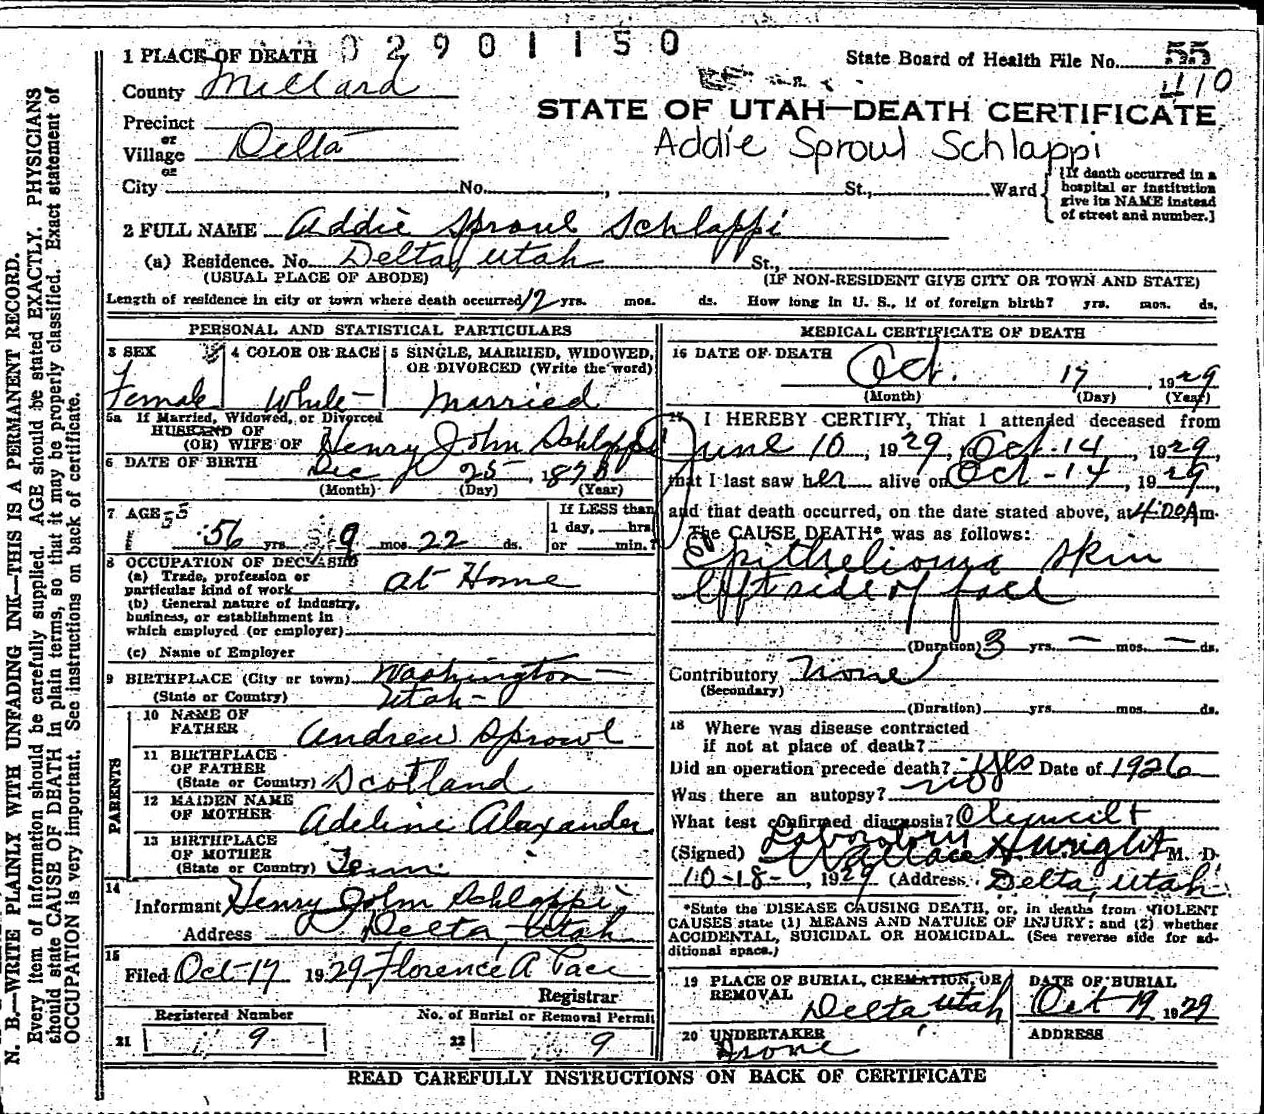 1 PLACE OF DEATH 02901150
State Board of Health File No. 55
110
County Millard
STATE OF UTAH—DEATH CERTIFICATE
Precinct
or
Village Delta
Addie Sproul Schlappi
or
City No. , St., Ward
[If death occurred in a
hospital or institution
give its NAME instead
of street and number.]
2 FULL NAME Addie Sproul Schlappi
(a) Residence. No. Delta, Utah St.,
(USUAL PLACE OF ABODE) (IF NON-RESIDENT GIVE CITY OR TOWN AND STATE)
Length of residence in city or town where death occurred 12 yrs. mos. ds. How long in U. S., if of foreign birth? yrs. mos. ds.
PERSONAL AND STATISTICAL PARTICULARS
3 SEX 4 COLOR OR RACE 5 SINGLE, MARRIED, WIDOWED,
OR DIVORCED (Write the word)
Female White Married
5a If Married, Widowed, or Divorced
HUSBAND OF
(OR) WIFE OF Henry John Schlappi
6 DATE OF BIRTH Dec 25 187
(Month) (Day) (Year)
7 AGE 55
56 yrs. 9 mos. 22 ds.
If LESS than
1 day, hrs.
or min.?
8 OCCUPATION OF DECEASED
(a) Trade, profession or
particular kind of work At Home
(b) General nature of industry,
business, or establishment in
which employed (or employer)
(c) Name of Employer
9 BIRTHPLACE (City or town) Washington
(State or Country) Utah
PARENTS
10 NAME OF
FATHER Andrew Sprowl
11 BIRTHPLACE
OF FATHER
(State or Country) Scotland
12 MAIDEN NAME
OF MOTHER Adeline Alaxander
13 BIRTHPLACE
OF MOTHER
(State or Country) Tenn
14
Informant Henry John Schlappi
Address Delta Utah
15
Filed Oct-17 1929 Florence A
Registrar
Registered Number No. of Burial or Removal Permit
21 9 22 9
MEDICAL CERTIFICATE OF DEATH
16 DATE OF DEATH
Oct. 17, 1929
(Month) (Day) (Year)
17 I HEREBY CERTIFY, That I attended deceased from
June 10, 1929, to Oct-14, 1929,
that I last saw her alive on Oct-14, 1929,
and that death occurred, on the date stated above, at 4:00 A m.
The CAUSE DEATH* was as follows:
Epithelioma skin
left side of face
(Duration) 3 yrs. — mos. — ds.
Contributory None
(Secondary)
(Duration) yrs. mos. ds.
18 Where was disease contracted
if not at place of death?
Did an operation precede death? yes Date of 1926
Was there an autopsy? no
What test confirmed diagnosis? Clinical +
Laboratory
(Signed) Wallace H Wright M. D.
10-18-, 1929 (Address. Delta, Utah
*State the DISEASE CAUSING DEATH, or, in deaths from VIOLENT
CAUSES state (1) MEANS AND NATURE OF INJURY: and (2) whether
ACCIDENTAL, SUICIDAL OR HOMICIDAL. (See reverse side for ad-
ditional space.)
19 PLACE OF BURIAL, CREMATION, OR
REMOVAL Delta Utah
DATE OF BURIAL
Oct 19 1929
20 UNDERTAKER
None
ADDRESS
READ CAREFULLY INSTRUCTIONS ON BACK OF CERTIFICATE
N. B.—WRITE PLAINLY WITH UNFADING INK—THIS IS A PERMANENT RECORD.
Every item of information should be carefully supplied. AGE should be stated EXACTLY. PHYSICIANS
should state CAUSE OF DEATH in plain terms, so that it may be properly classified. Exact statement of
OCCUPATION is very important. See instructions on back of certificate.